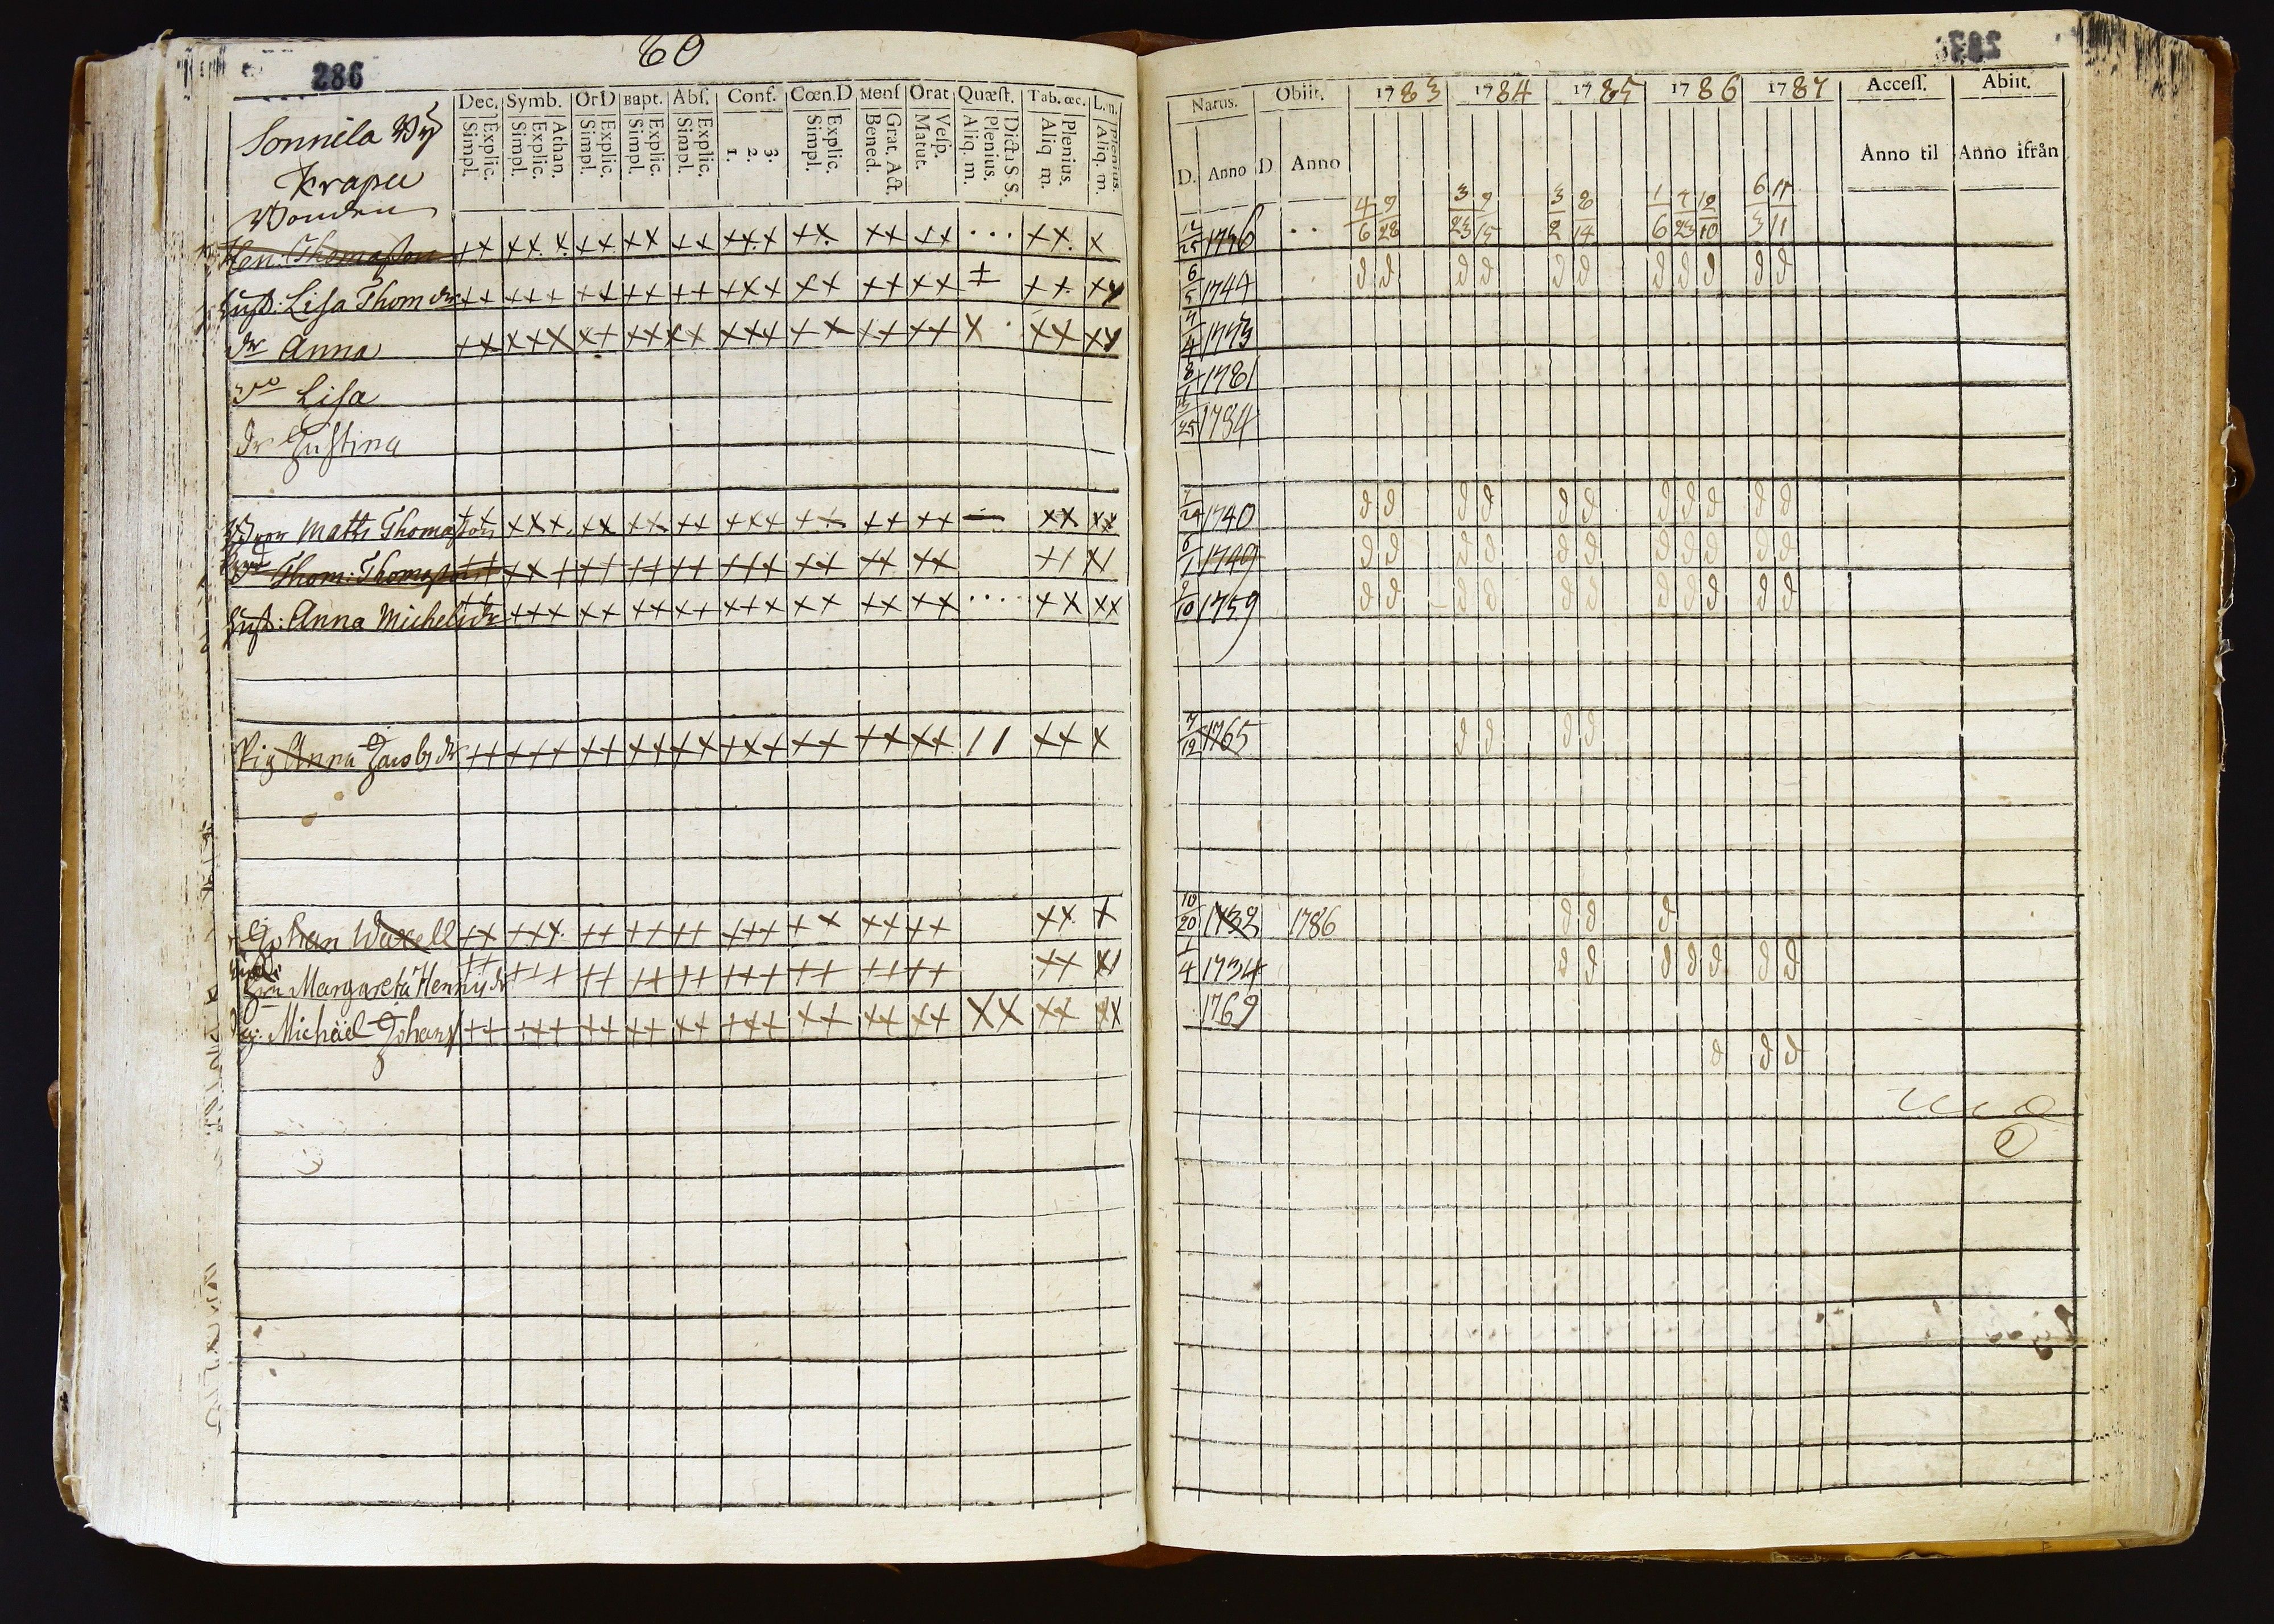 286
60
Sonnila By
Krapu
Bonden
Dec. Symb. Or D Bapt. Abs. Conf. Cœn.D. Mens Orat Quæst. Tab. œc. L.n.
Explic. Simpl. Athan. Explic. Simpl. Explic. Simpl. Explic. Simpl. Explic. Simpl. 3. 2. 1. Explic. Simpl. Grat. Act. Bened. Vesp. Matut. Dicta S.S. Plenius. Aliq. m. Plenius. Aliq m. Plenius. Aliq. m.
Hen: Thomasson
hust: Lisa Thom dr
dr Anna
dr Lisa
dr Justina
Matts Thomasson
Thom: Thomasson
hust: Anna Michelsdr
Pig Anna Jacobs dr
Johan Waxell
Margareta Henric dr
Michäel Johans
287
Natus. Obiit. 1783 1784 1785 1786 1787 Access. Abiit.
D. Anno D Anno Anno til Anno ifrån
4/6 9/28 3/23 9/15 3/2 8/14 1/6 7/23 12/10 6/3 11/11
12/25 1736
6/5 1744 d d d d d d d d d d d
4/4 1773
8/1 1781
1784
1740 d d d d d d d d d d d
6/1 1749 d d d d d d d d d d d
9/10 1759 d d d d d d d d d d d
7/12 1765 d d d d
10/20 1732 1786 d d d
1/4 1734 d d d d d d d
1769
d d d